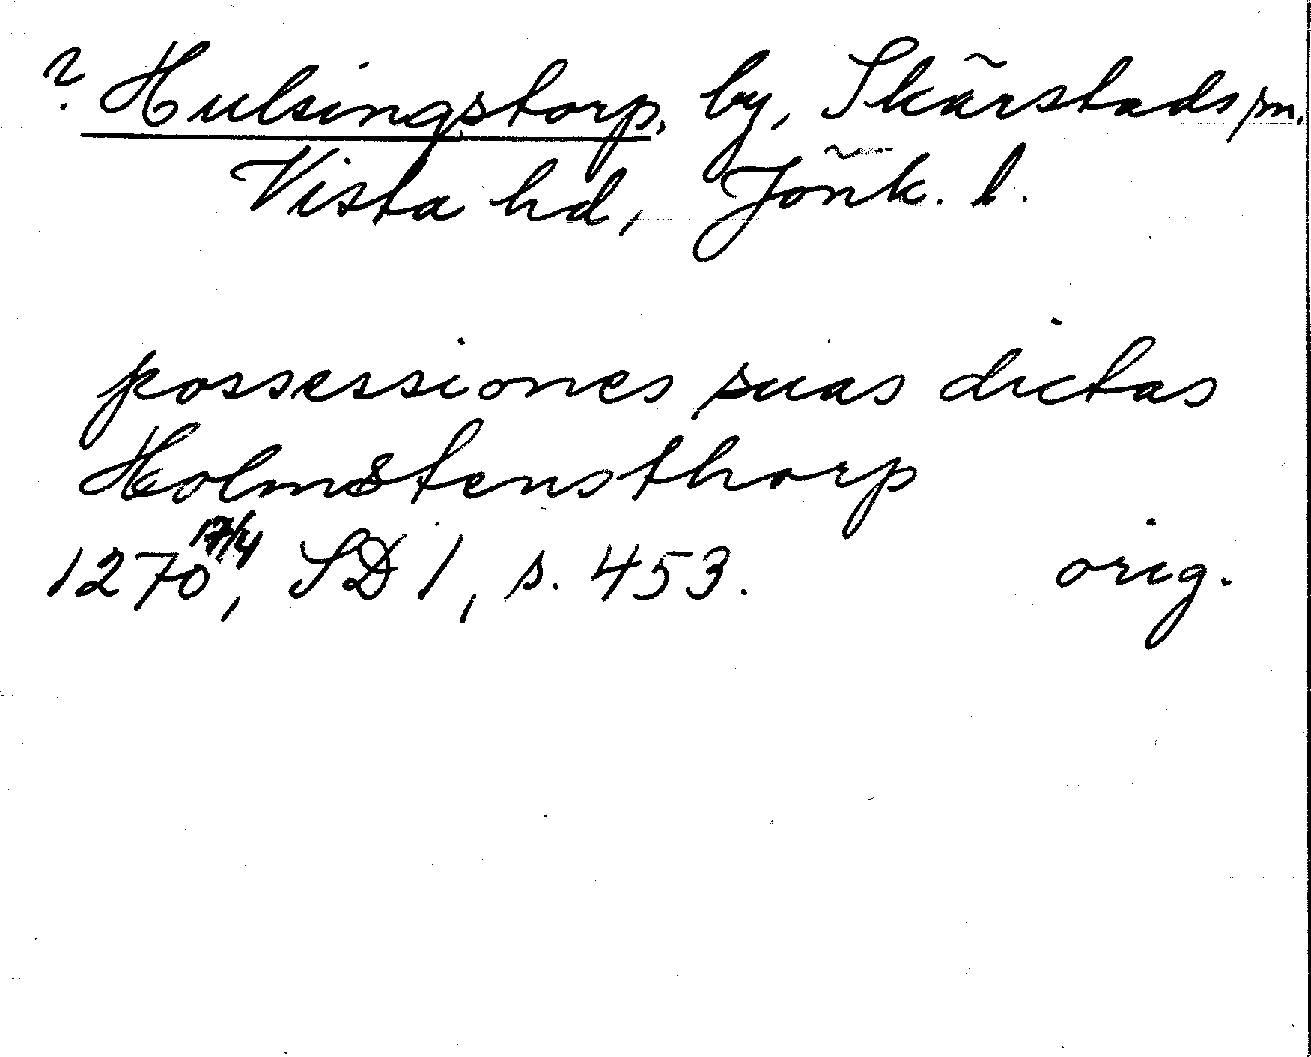 ? Hulsingstorp, by, Skärstads sn.
Vista hd, Jönk. l.
possessiones suas dictas
Holmstensthorp
1270 17/4, SD 1, s. 453. orig.